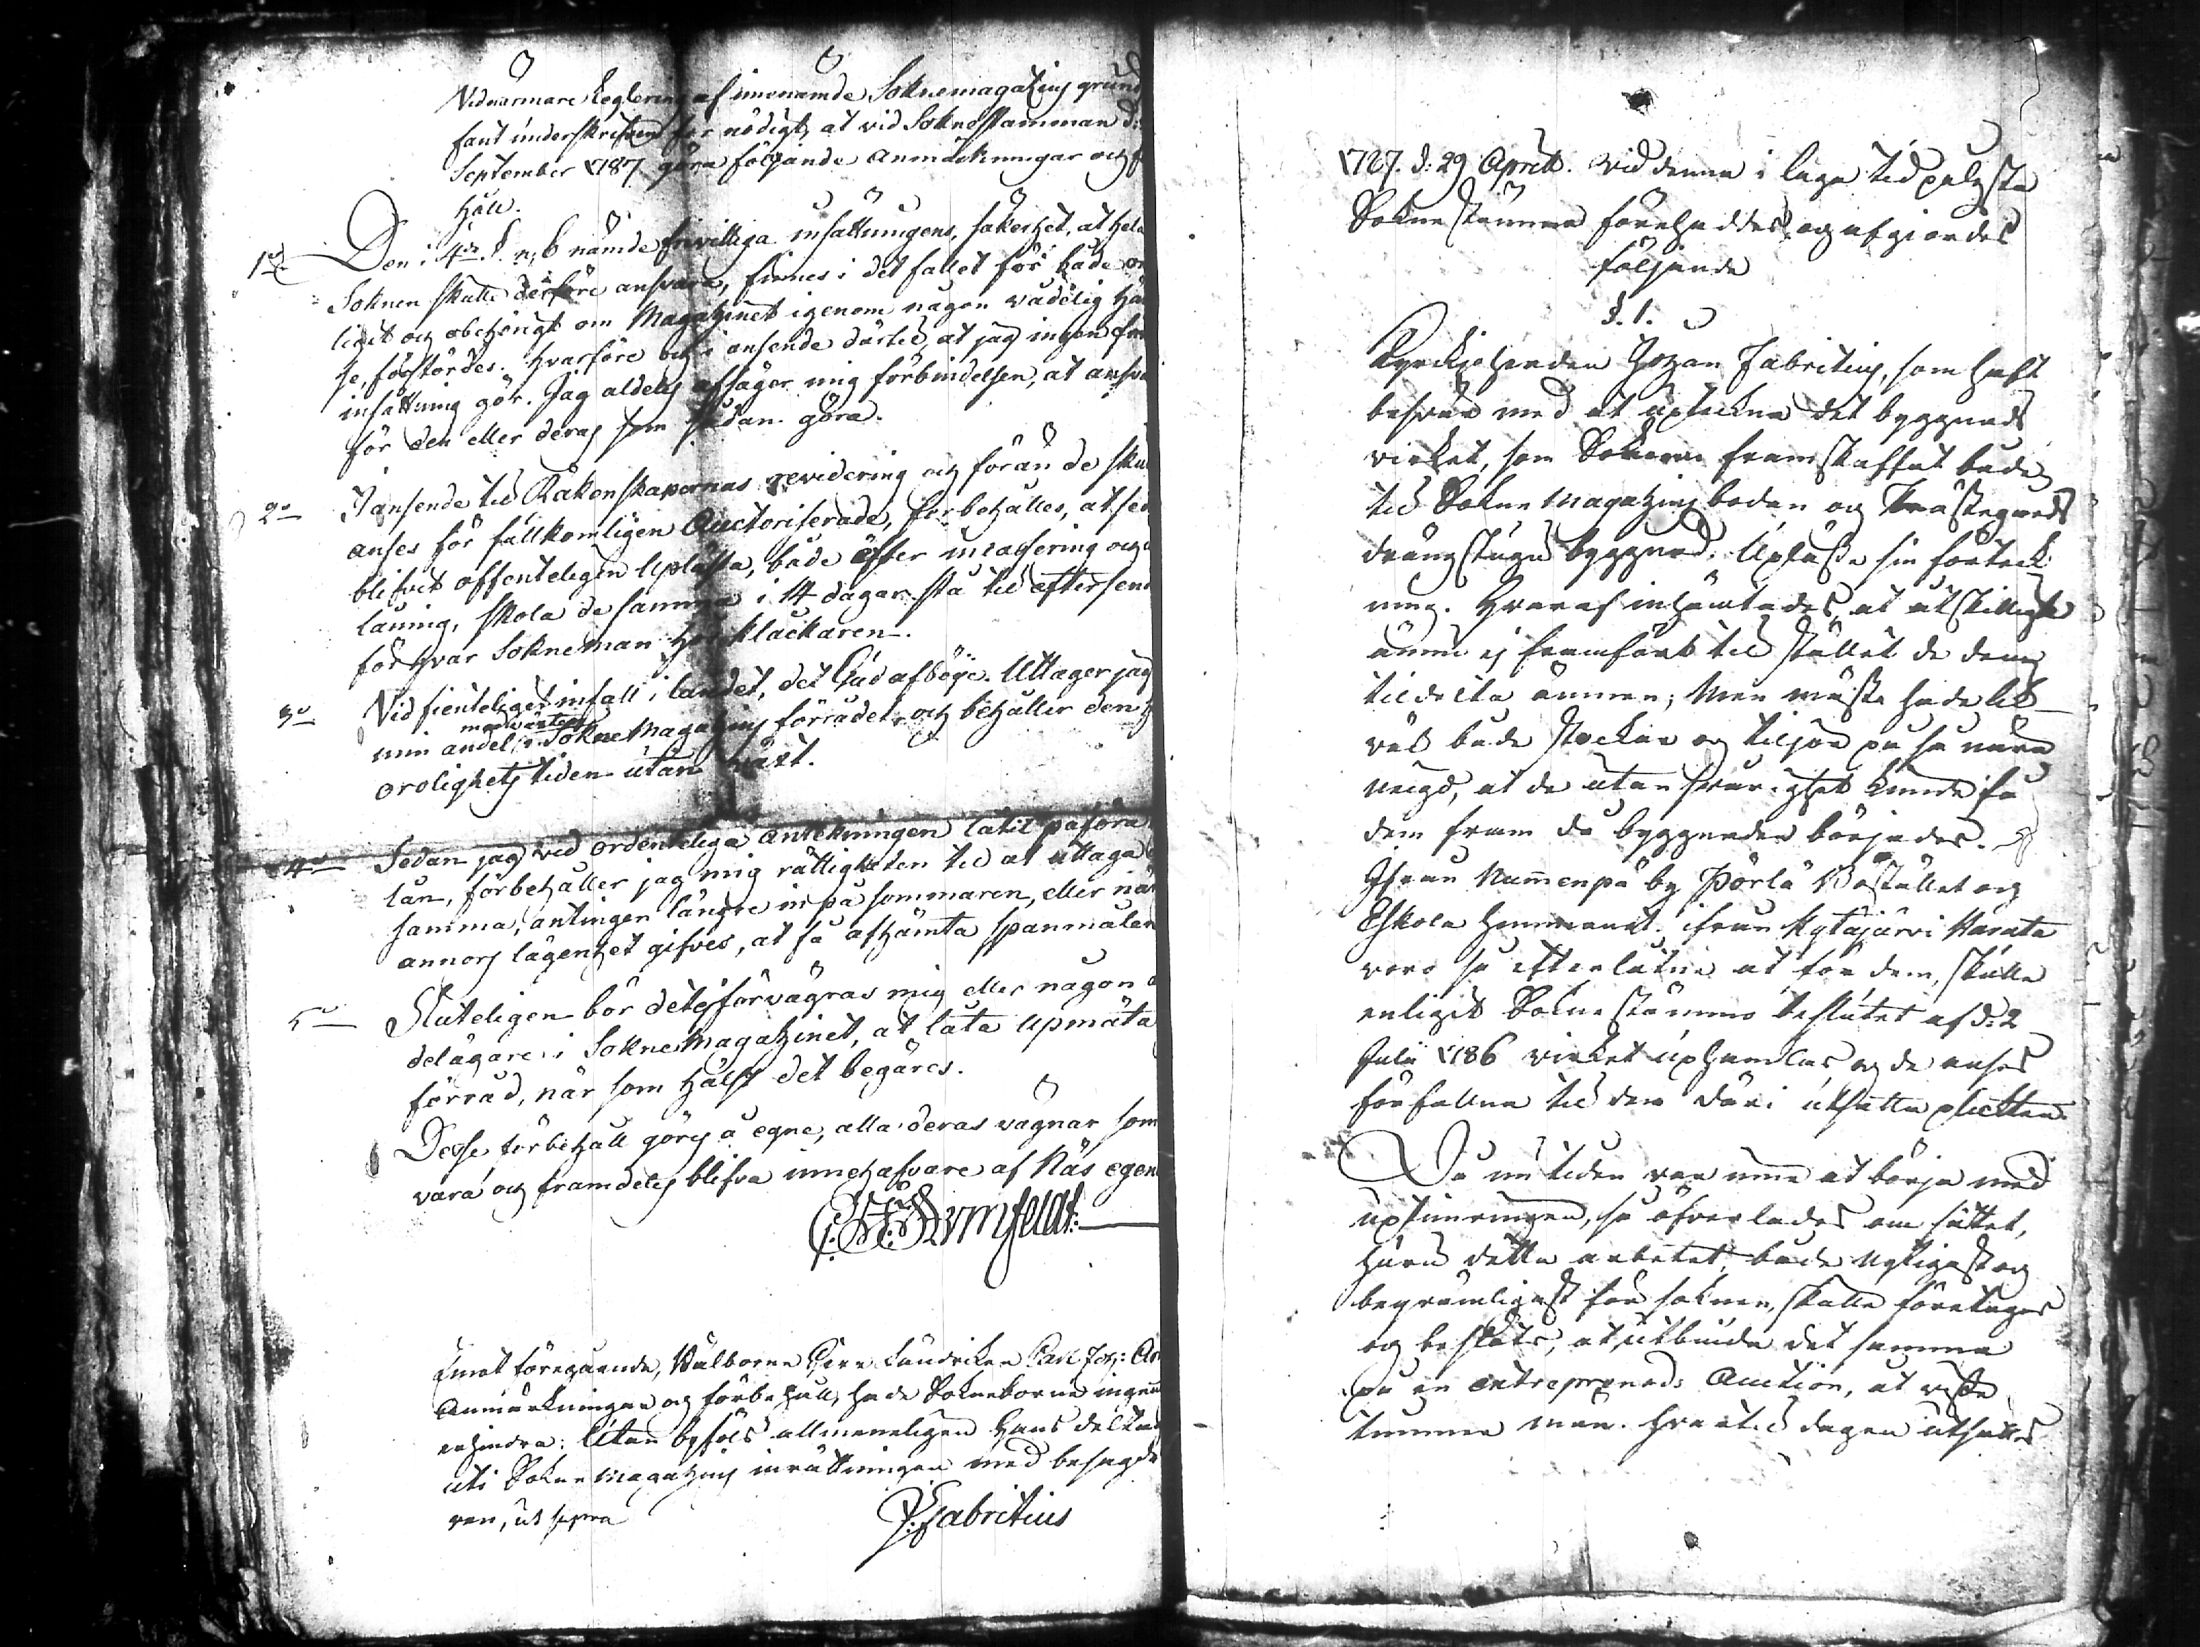 Vid närmare Reglering af innenämde Soknemagatzins grund
fant underskrifven för nödigt, at vid Soknestämman d:
September 1787 göra följande anmärkningar och f
håll.
1o Den i 4de §. n: 6 nämde frivilliga insättningens, säkerhet, at hela
Soknen skulle derföre ansvara, finnes i det fallet för både
ligit och obehörigt om Magatzinet igenom någon vådelig hän
se, förstördes. Hvarföre och i anseende därtil, at jag ingen
insättning gör. Jag aldeles afsäger mig förbindelsen, at ansva
för den eller deras som sådan göra.
2o I anseende til Räkenskapernas revidering och förän de sku
anses för fullkomligen Auctoriserade, förbehålles, at sed
blifvit offenteligen Uplästa, både öfter incassering och
låning, skola de samma i 14 dagar stå til eftersend
för hvar Sokneman hos klåckaren.
3o Vid fienteligt infall i landet, det Gud afböje. Uttager jag
medvärtes
min andel i Sokne Magatzins förrådet, och behåller den
orolighets tiden utan ränt.
4o Sedan jag vid ordenteliga anteckningen låtit påföra
lån, förbehåller jag mig rättigheten til at uttaga
samma, antingen längre in på sommaren, eller när
annors lägenhet gifves, at få afhämta spanmålen
5o Sluteligen bör det ej förvägras mig eller någon
delägare i Sokne Magatzinet, at låta upmäta
förråd, när som hälst det begäres.
Desse förbehåll görs å egne, alla deras vägnar som
vara och framdeles blifva innehafvare af Näs egen
C: H: Armfeldt:
Emot föregående, Välborne Herr Landrichen Carl Joh: Ar
Anmärkningar och förbehåll, hade Sokneborne ingen
erhindra: Utan biföls allmenneligen Hans deltag
uti Sokne Magatzins inrättningen med besagde
ren, ut supra
J: Fabritius
1787. d: 29 Aprill. Vid denna i laga tid pålysta
Sokne stämma förehaddes, og afgiordes
följande
§. 1.
Kyrckioherden Johan Fabritius, som haft
besvär med at uptekna det byggnads
virket, som Soknen framskaffat både
til Sokne Magatzins boden og Prästegårds
drängstugu byggnad. Upläste sin förteck
ning. Hvaraf inhämtades at åtskillige
ännu ej framfört til stället de dem
tildelta ämnen; Men måste hade lik
väl både stockar og tiljor på så nära
vägd, at de utan svårighet kunde få
dem fram då byggnaden börjades.
Ifrån Nummenpä by Pörlä Bostället og
Eskola hemmanet. ifrån Kytäjärvi Karata
voro så efterlåtne at för dem, skulle
enligit Sokne stämmo beslutet af d: 2
Julii 1786 virket uphandlas og de anses
förfallne til den däri utsatta plickten.
Då nu tiden var inne at börja med
uptimringen, så öfverlades om sättet,
huru detta arbetet, både nyttigast og
beqvämligast för soknen, skulle företagas
og beslöts, at utbiuda det samma
på en entreprenads Auction, at visse
timmer män. hvartil dagen utsattes